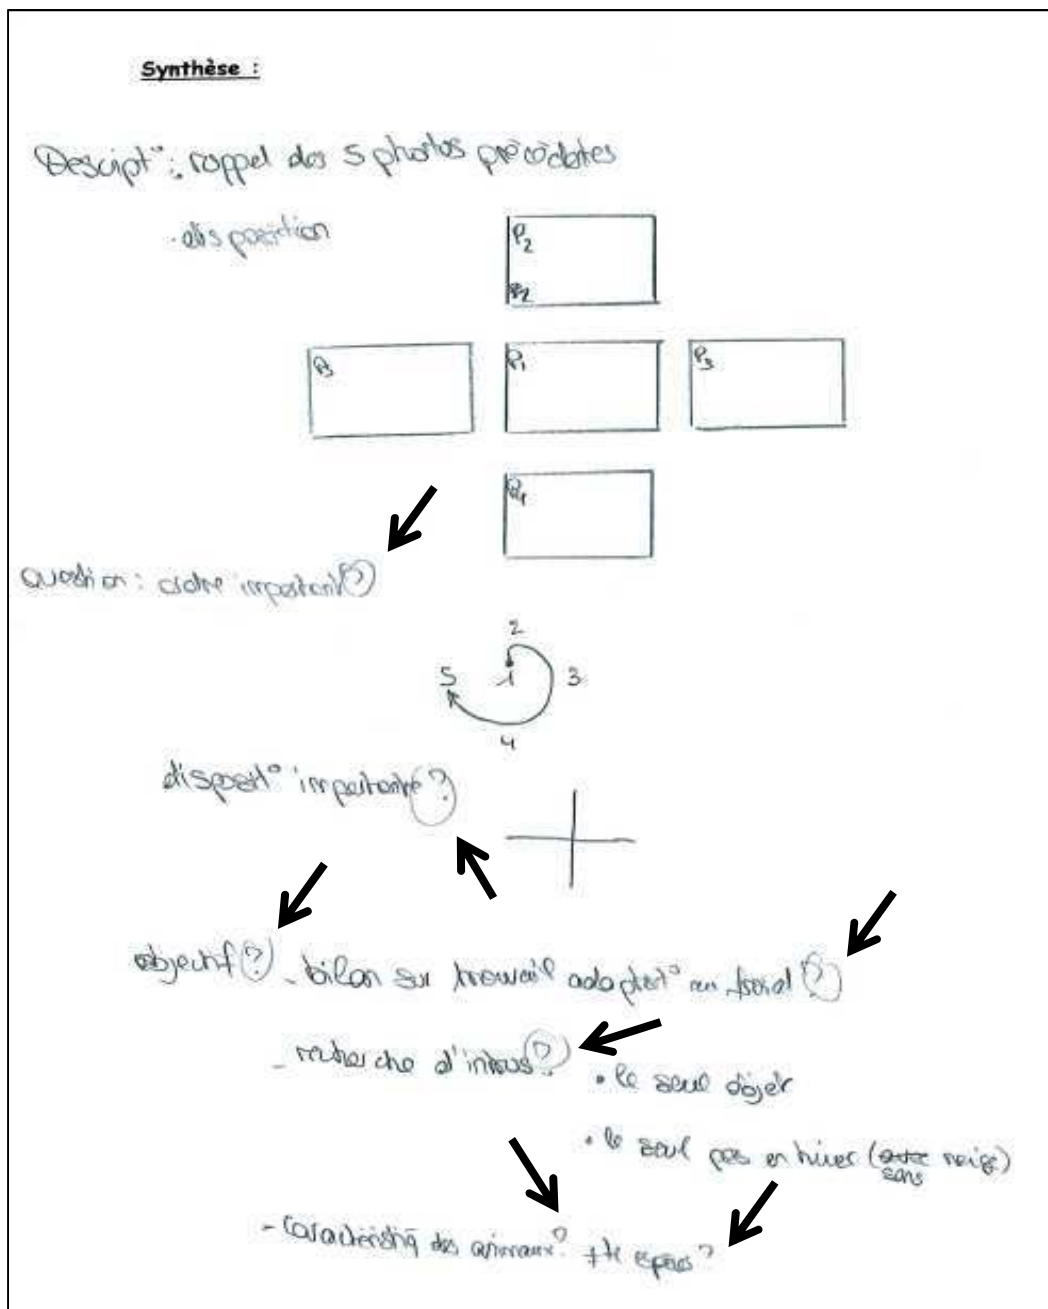 Synthèse :
Descript° : rappel des 5 photos précédentes
- disposition
P2
P5 P1 P3
P4
question : ordre important ?
2
5 1 3
4
disposit° importante ?
objectif ? - bilan sur travail adaptat° au froid ?
- recherche d'intrus ? • le seul objet
• le seul pas en hiver (sans neige)
- caractéristiq des animaux ? espèces ?